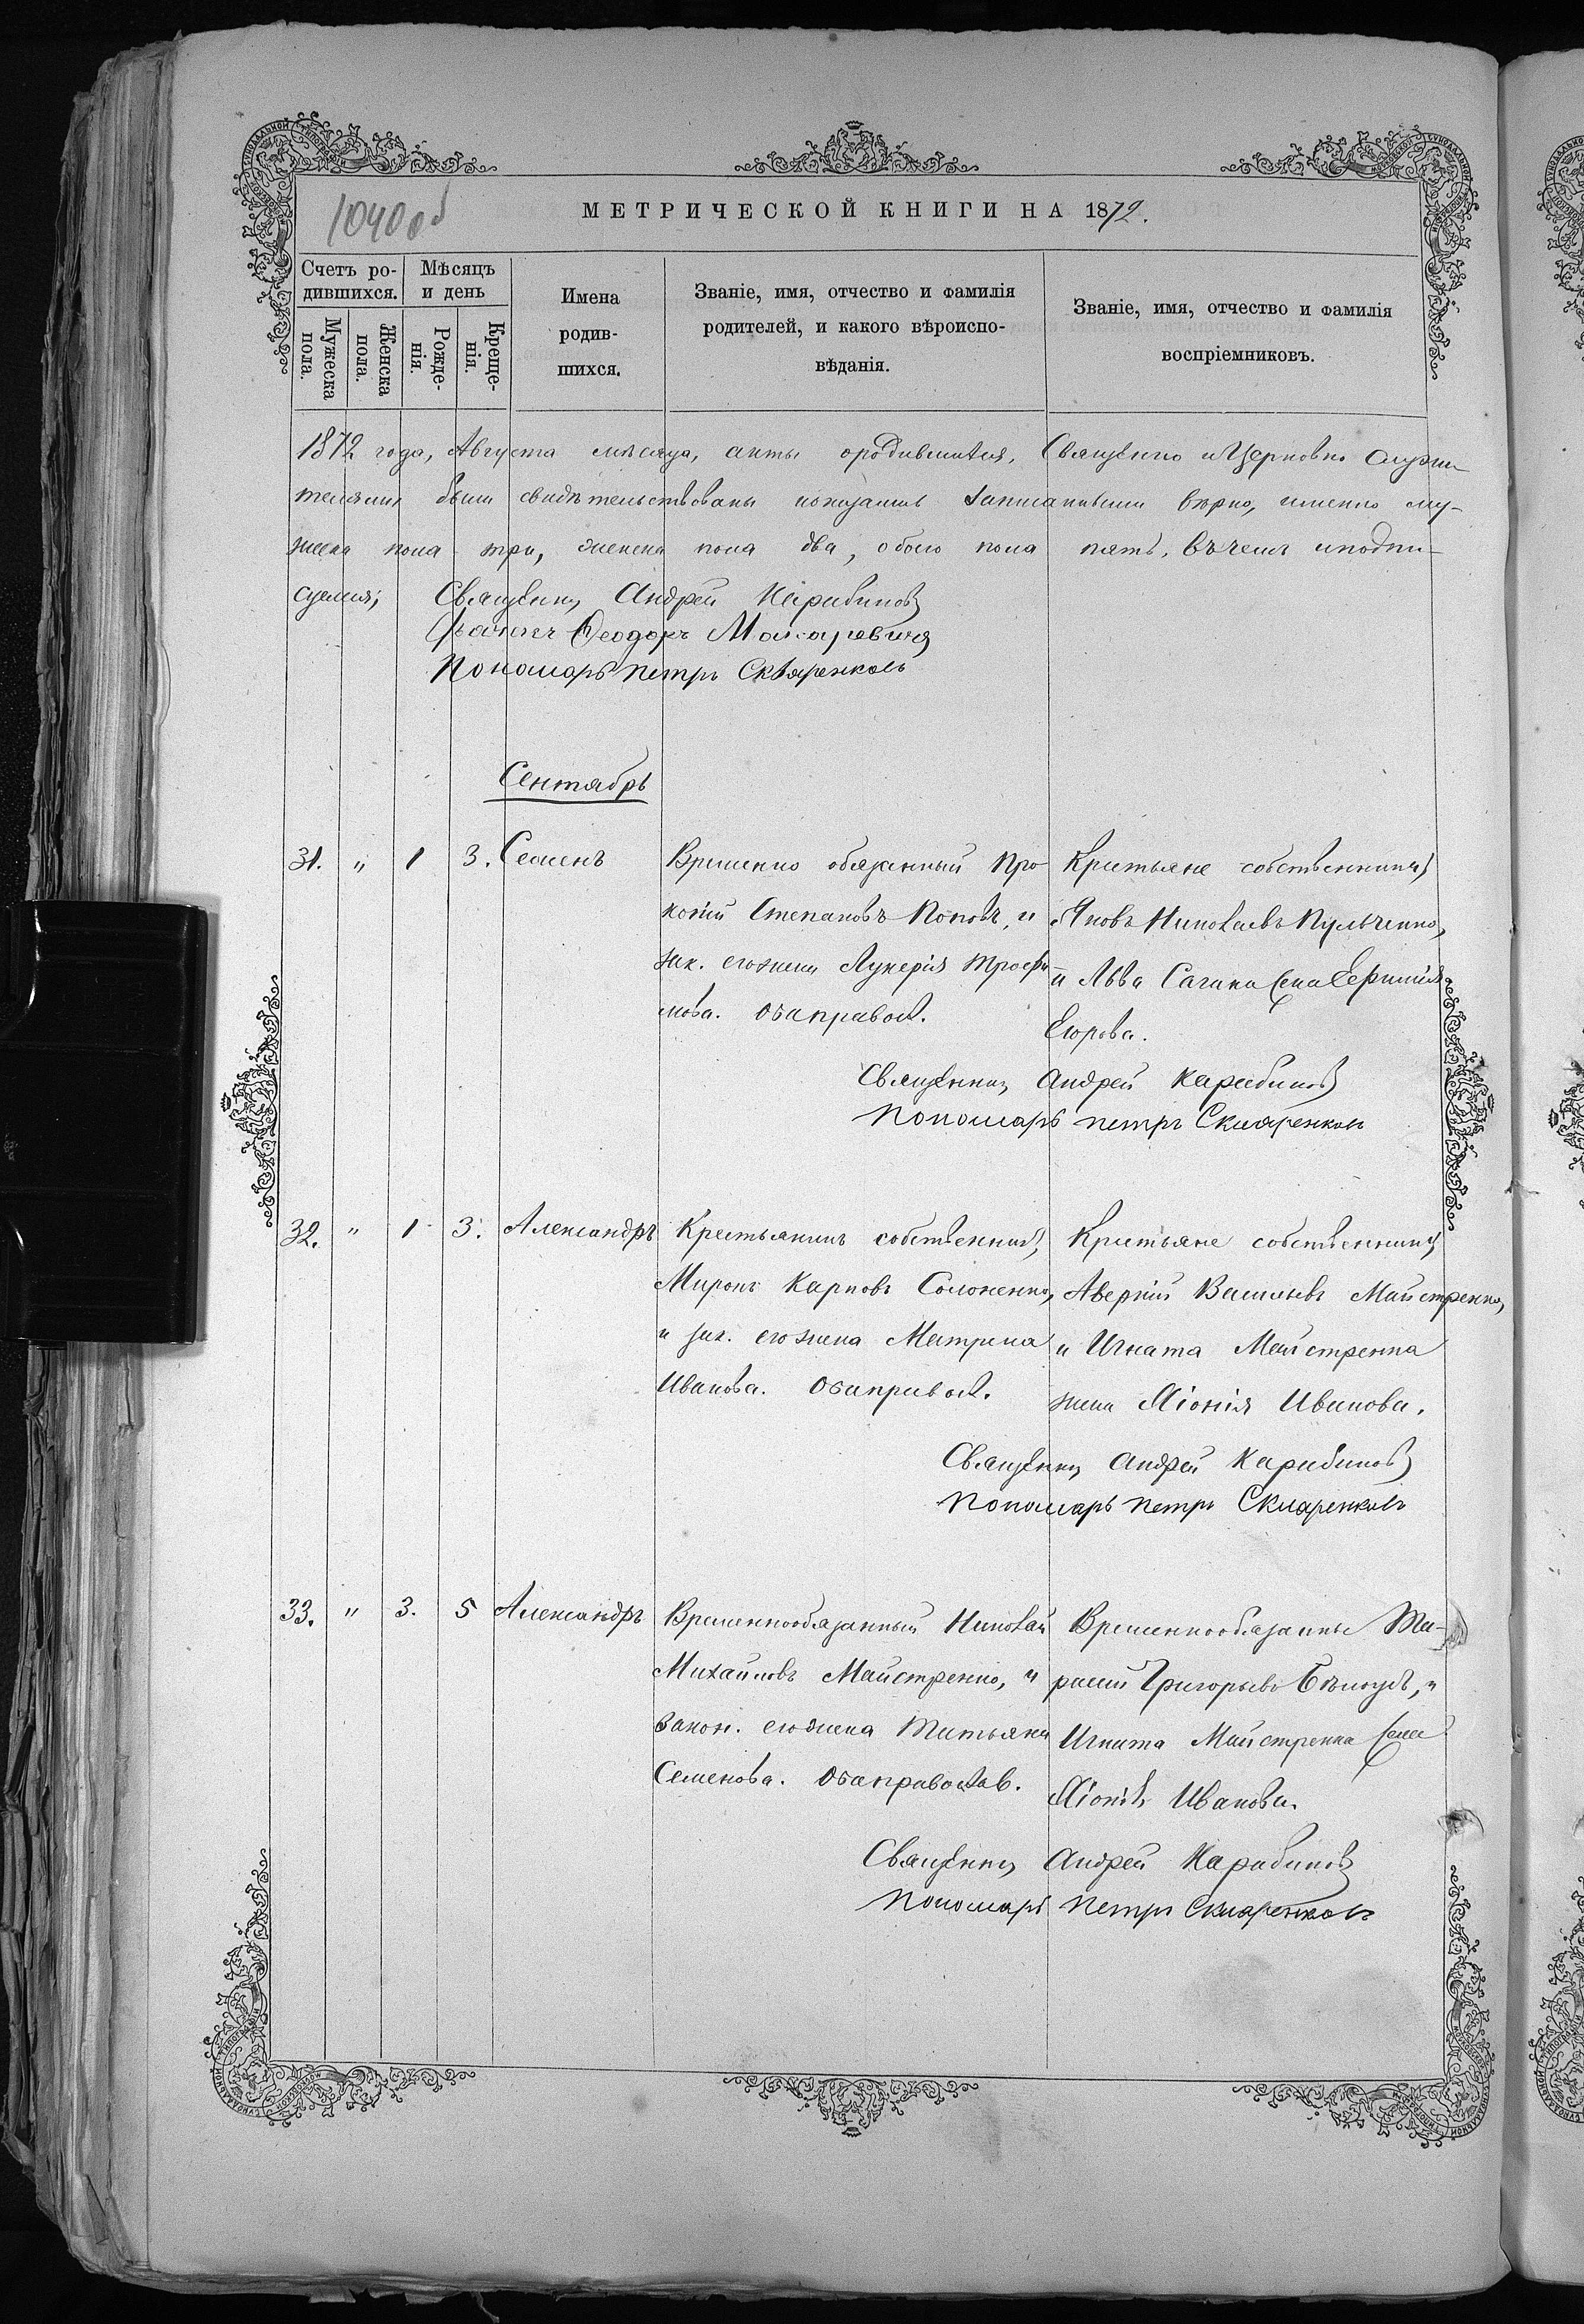 1040об
МЕТРИЧЕСКОЙ КНИГИ НА 1872.
Счетъ ро-
дившихся.
Мѣсяцъ
и день
Мужеска
пола.
Женска
пола.
Рожде-
нія.
Креще-
нія.
Имена
родив-
шихся.
Званіе, имя, отчество и фамилія
родителей, и какого вѣроиспо-
вѣданія.
Званіе, имя, отчество и фамилія
воспріемниковъ.
1872 года, Августа мѣсяца, акты ородившихся, Священно иЦерковно служи-
телями были свидѣтельствованы показаніе записанными вѣрно, именно му-
жеска пола три, женска пола два, обоего пола пять. Въчемъ иподпи-
суемся;
Священникъ Андрей Карабиновъ
Ѳеодоръ Макаревичъ
Пономарь Петръ Скляренковъ
Сентябрь
31. " 1 3. Семенъ
Временно обязанный Про-
копій Степановъ Поповъ, и
зак. егожена Лукерія Трофи-
мова. Обаправосл.
Крестьяне собственники,
Яковъ Николаевъ Кульченко,
и Льва Сагана жена Ефимія
Егорова.
Священникъ Андрей Карабиновъ
Пономарь Петръ Скляренковъ
32. " 1 3. Александръ
Крестьянинъ собственникъ,
Миронъ Карповъ Солоненко,
и зак. егожена Матрена
Иванова. Обаправосл.
Крестьяне собственники,
Аверкій Васильевъ Майстренко,
и Игната Майстренка
жена Хіонія Иванова.
Священникъ Андрей Карабиновъ
Пономарь Петръ Скляренковъ
33. " 3. 5 Александръ
Временнообязанный Николай
Михайловъ Майстренко, и
закон. егожена Татьяна
Семенова. Обаправослав.
Временнообязанные Та-
расій Григорьевъ Бѣлоусъ, и
Игната Майстренка жена
Хіонія Иванова.
Священникъ Андрей Карабиновъ
Пономарь Петръ Скляренковъ